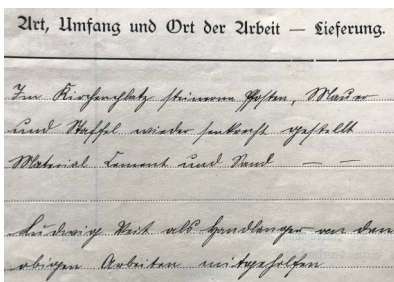 Art, Umfang und Ort der Arbeit — Lieferung.
Im Kirchenplatz steinerne Pfosten, Mauer
und Staffel wieder senkrecht gestellt
Material Cement und Sand — —
Ludwig Veit als Handlanger an den
obigen Arbeiten mitgeholfen